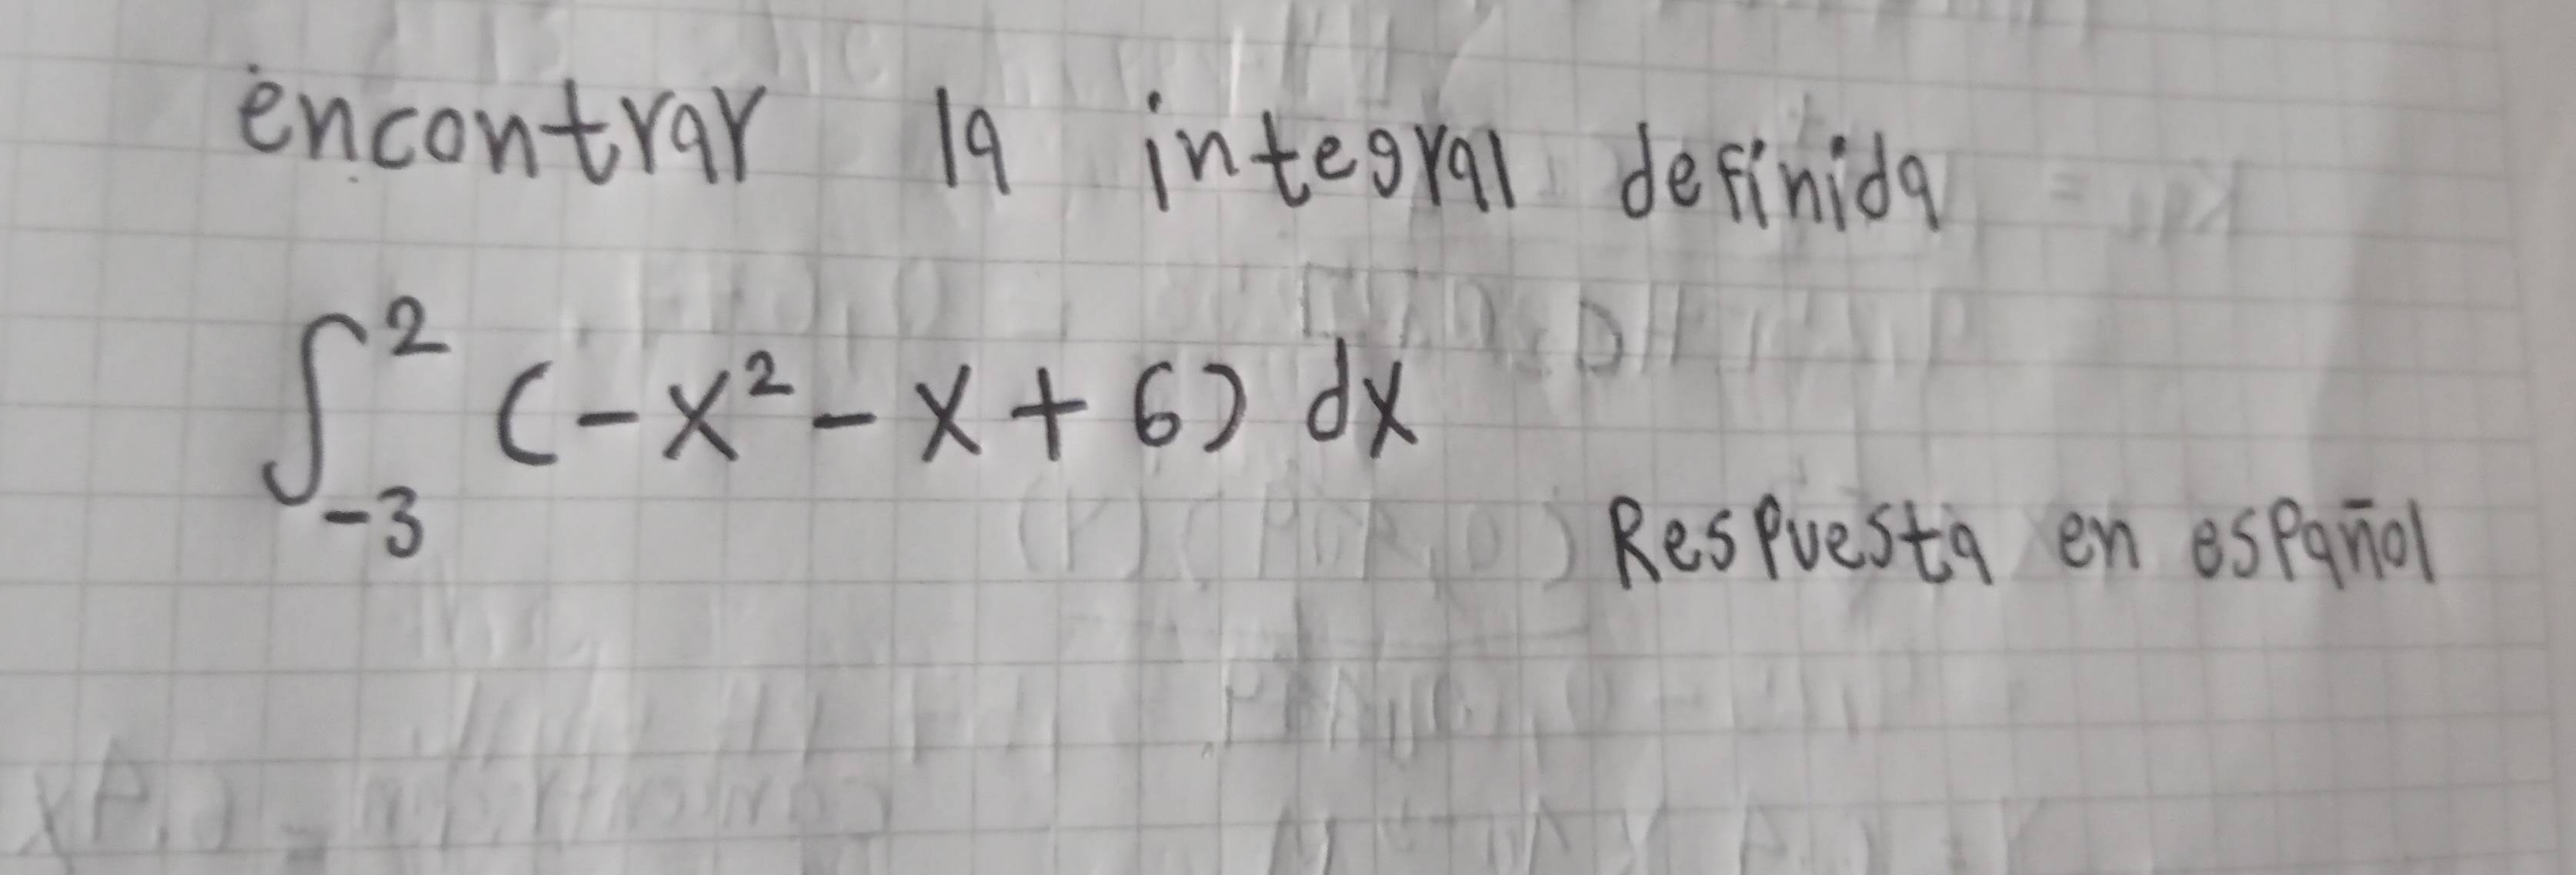 encontrar la integral definida
∫₋₃² (-x² - x + 6) dx
Respuesta en español